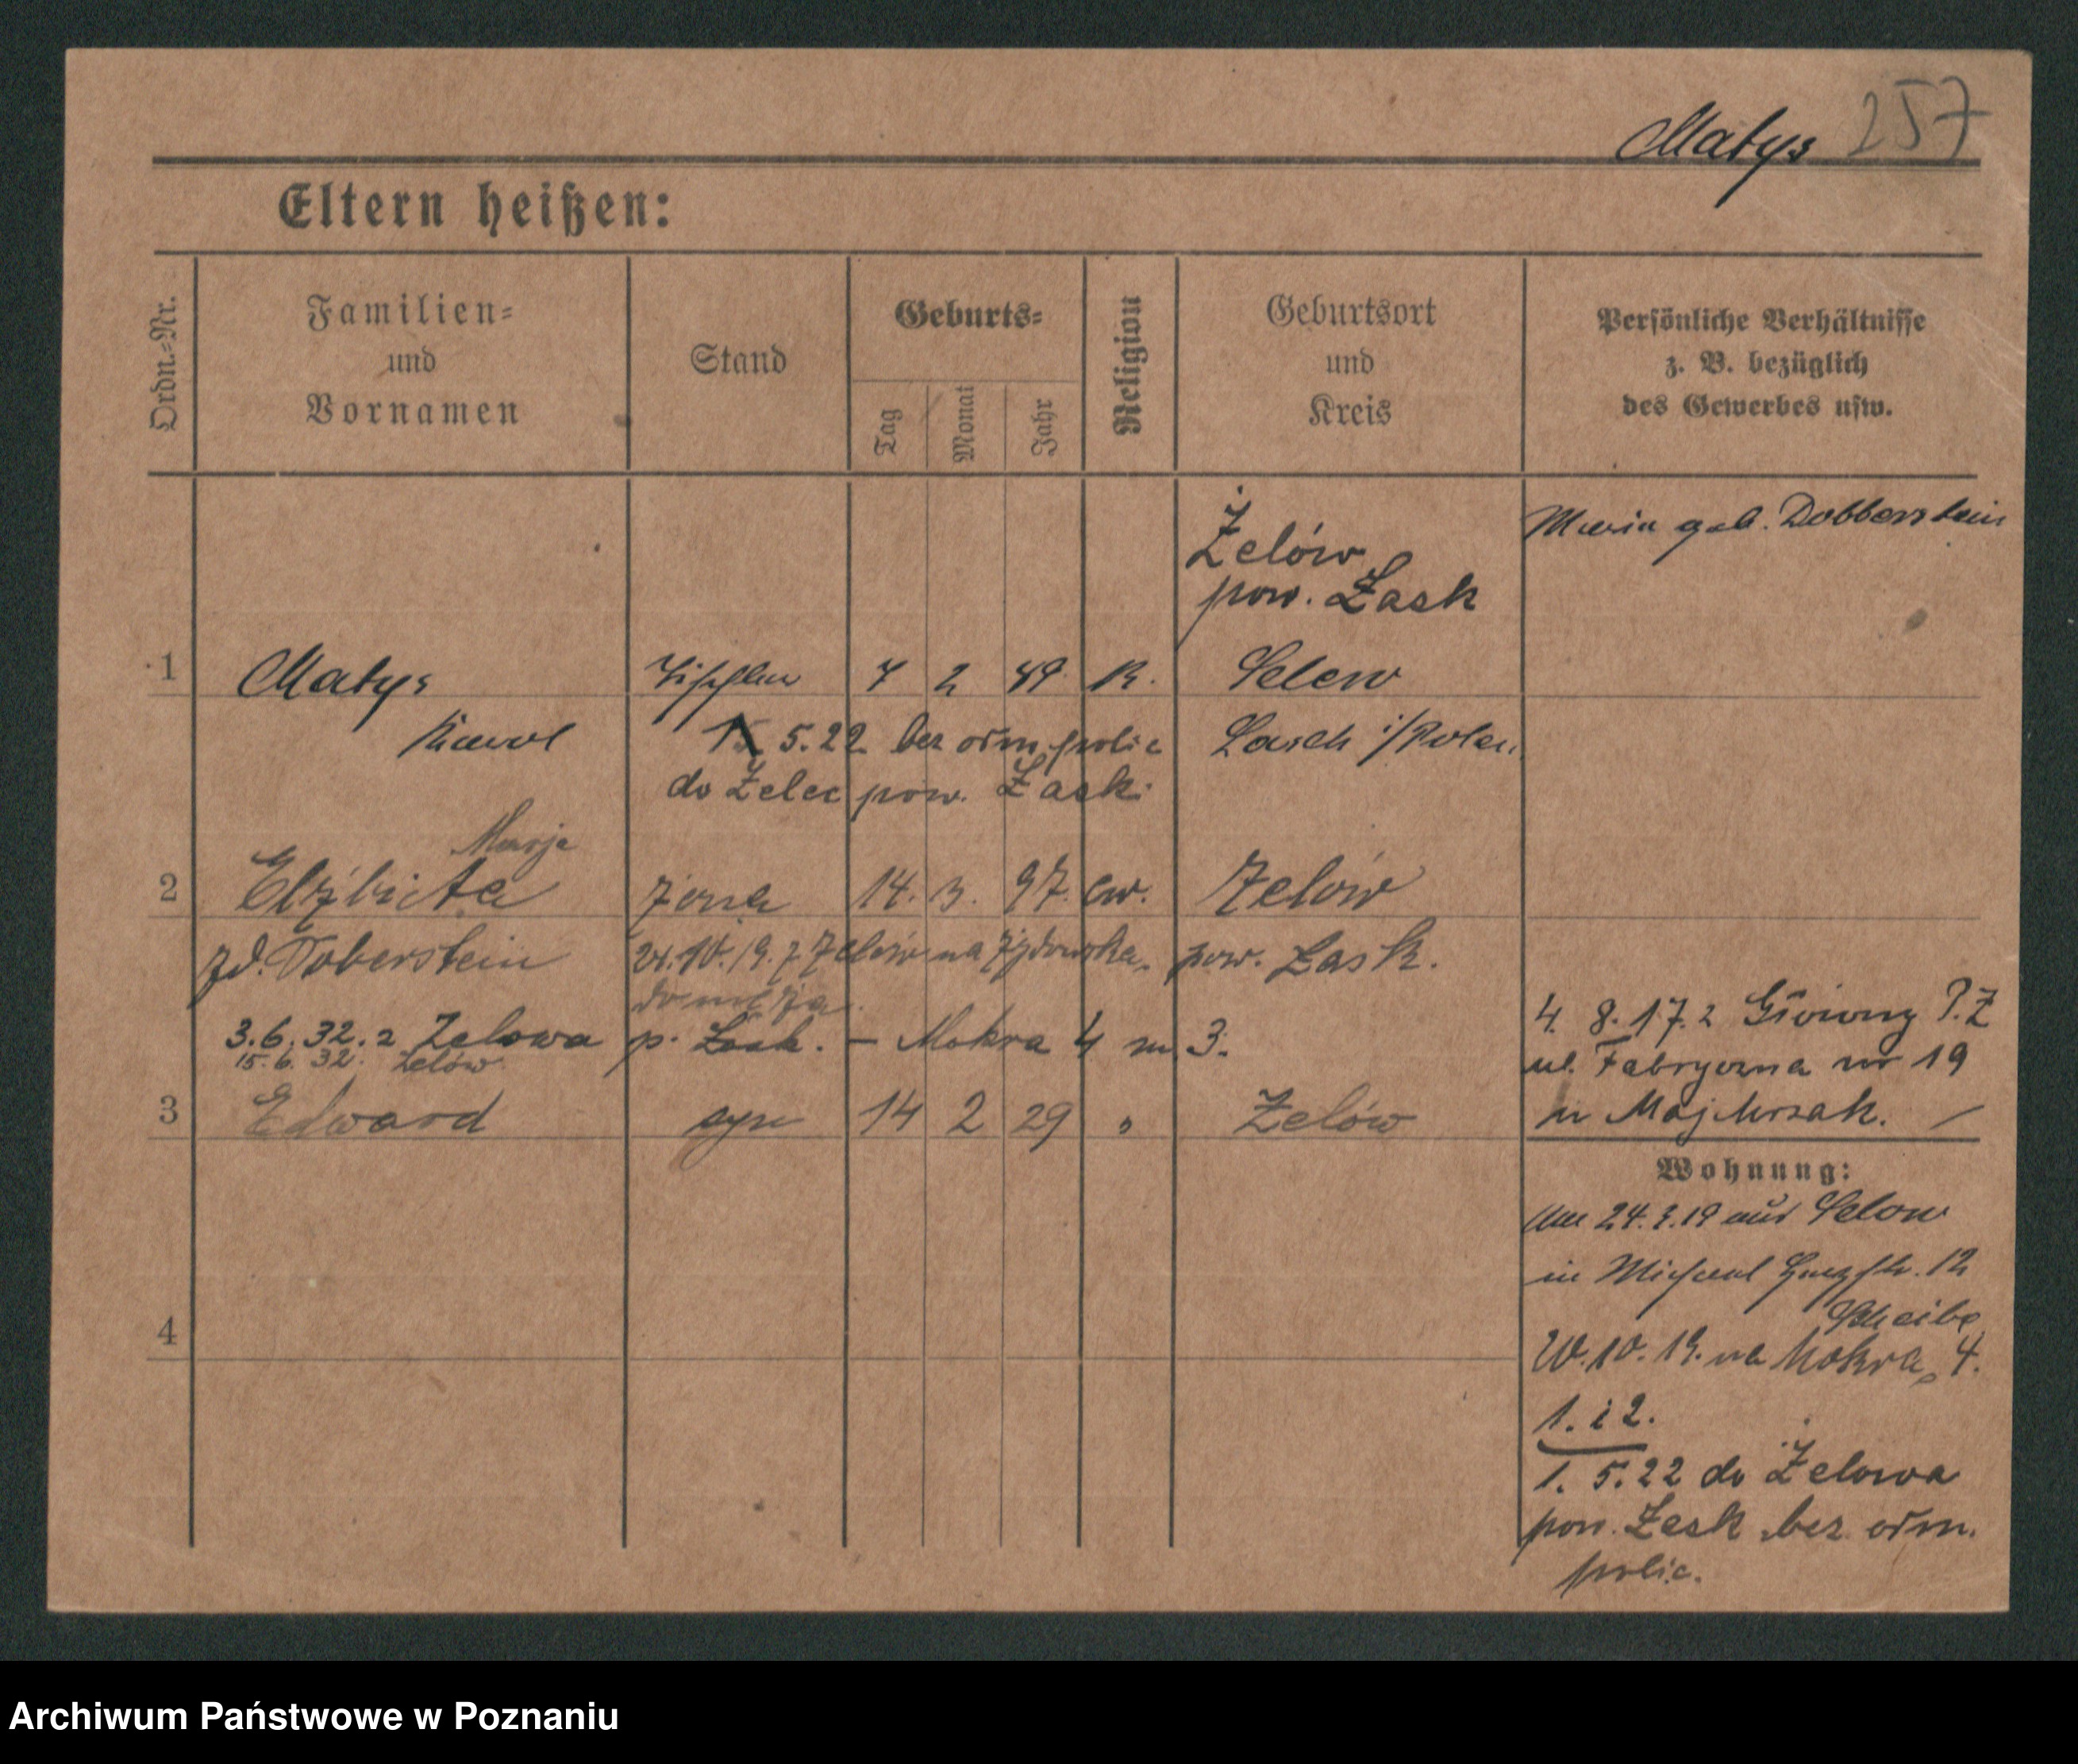 Matys 257
Eltern heißen:
Ordn.-Nr.
Familien-
und
Vornamen
Stand
Geburts-
Tag
Monat
Jahr
Religion
Geburtsort
und
Kreis
Persönliche Verhältnisse
z. B. bezüglich
des Gewerbes usw.
Maria geb. Dobberstein
Żelów
pow. Łask
1 Matys Tischler 7 2 89 R. Selow
Karol 5.22 bez odm. polic Lasch i/Polen
do Zelec pow. Łask
Marja
2 Elżbieta żona 14. 3. 97. ew. Zelów
zd. Doberstein 24.10.19. z Zelów na Żydowska pow. Łask.
do męża
3.6.32. z Zelowa p. Łask. – Mokra 4 m 3.
15.6.32. Zelów
4. 8. 17. z Główny P.Z
ul. Fabryczna nr 19
3 Edward syn 14 2 29 " Zelów
Wohnung:
Am 24.3.19 aus Selow
in 12
Scheibe
10.19. na Mokra 4.
4
1. i 2.
1. 5.22 do Żelowa
pow. Łask bez odm.
polic.
Archiwum Państwowe w Poznaniu